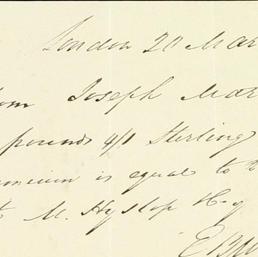 London 20 Mar
om Joseph Mar
pounds 4/1 Sterling
emium is equal to
M. Hyslop